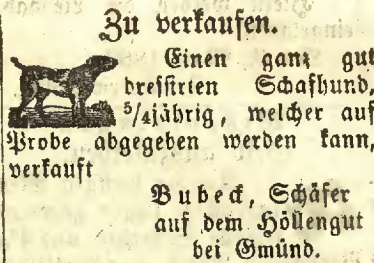 Zu verkaufen.
Einen ganz gut
dressirten Schafhund,
5/4jährig, welcher auf
Probe abgegeben werden kann,
verkauft
Bubeck, Schäfer
auf dem Höllengut
bei Gmünd.